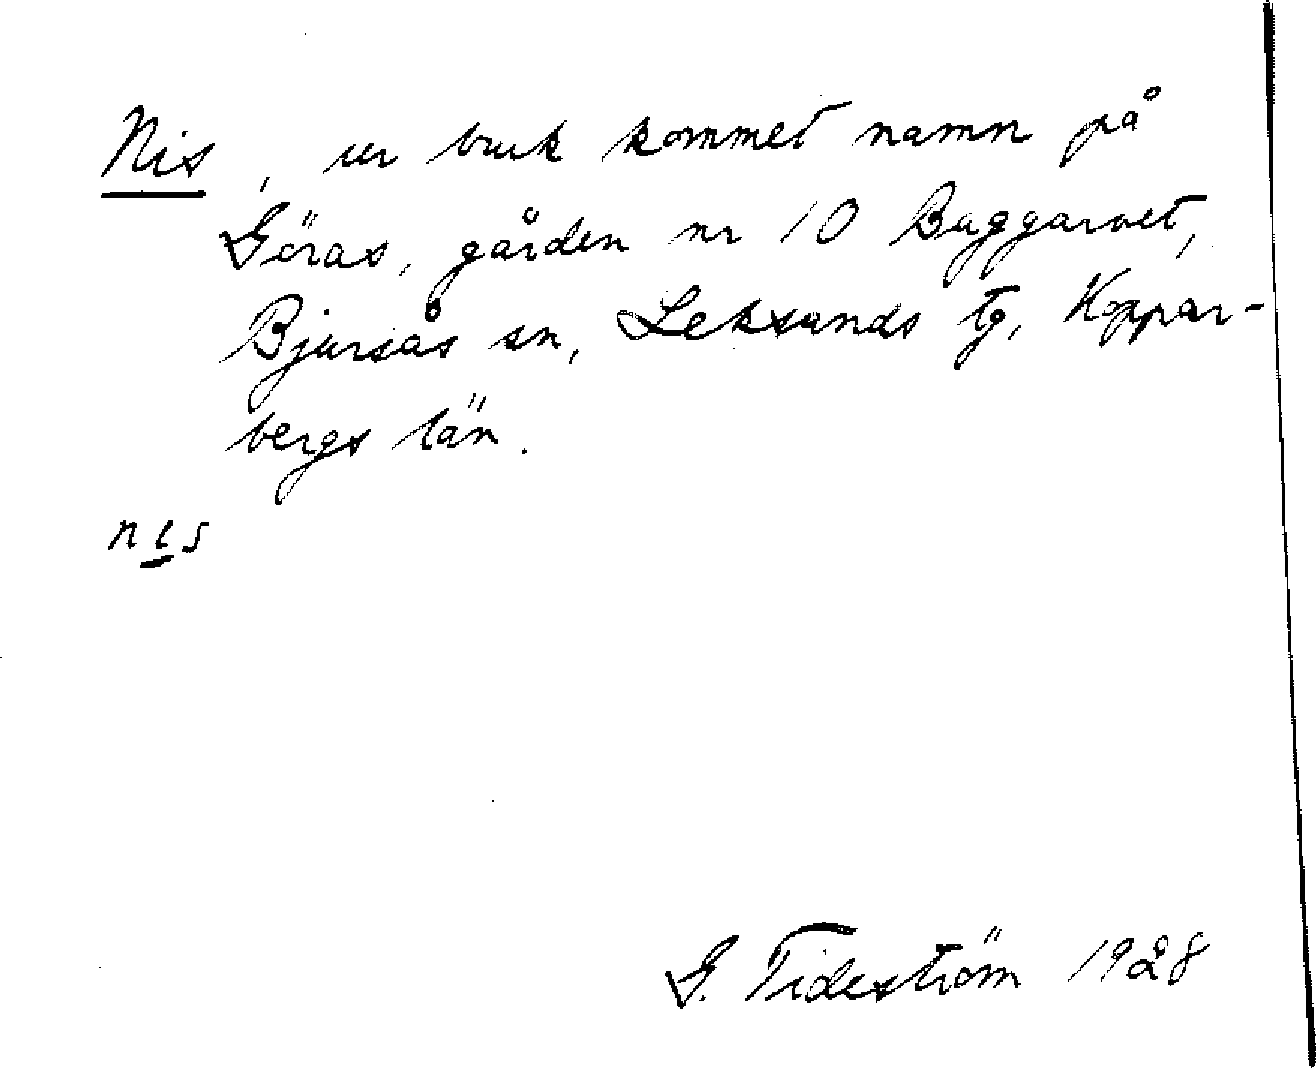 Nis, ur bruk kommet namn på
Göras, gården nr 10 Baggarvet,
Bjursås sn, Leksands tg, Koppar-
bergs län.
nıs
G. Tideström 1928